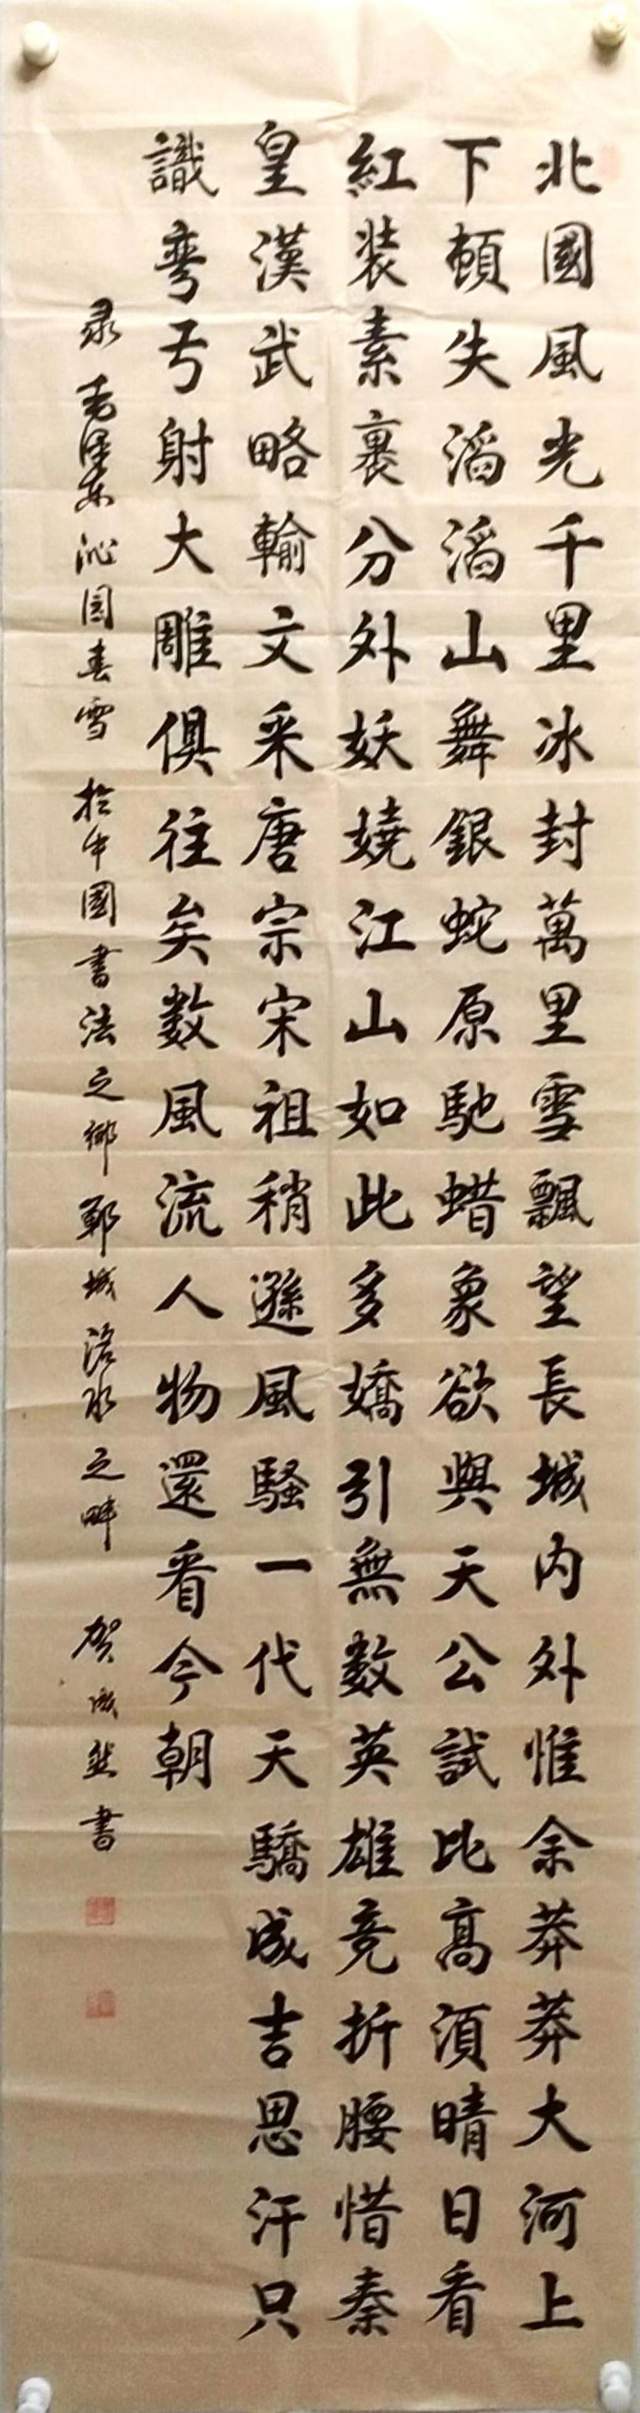 北國風光千里冰封萬里雪飄望長城内外惟余莽莽大河上
下頓失滔滔山舞銀蛇原馳蜡象欲與天公試比高須晴日看
紅装素裹分外妖嬈江山如此多嬌引無数英雄竞折腰惜秦
皇漢武略輸文采唐宗宋祖稍遜風騷一代天驕成吉思汗只
識彎弓射大雕俱往矣数風流人物還看今朝
录毛泽东沁园春雪於中國書法之鄉鄆城洛水之畔 贺成然書